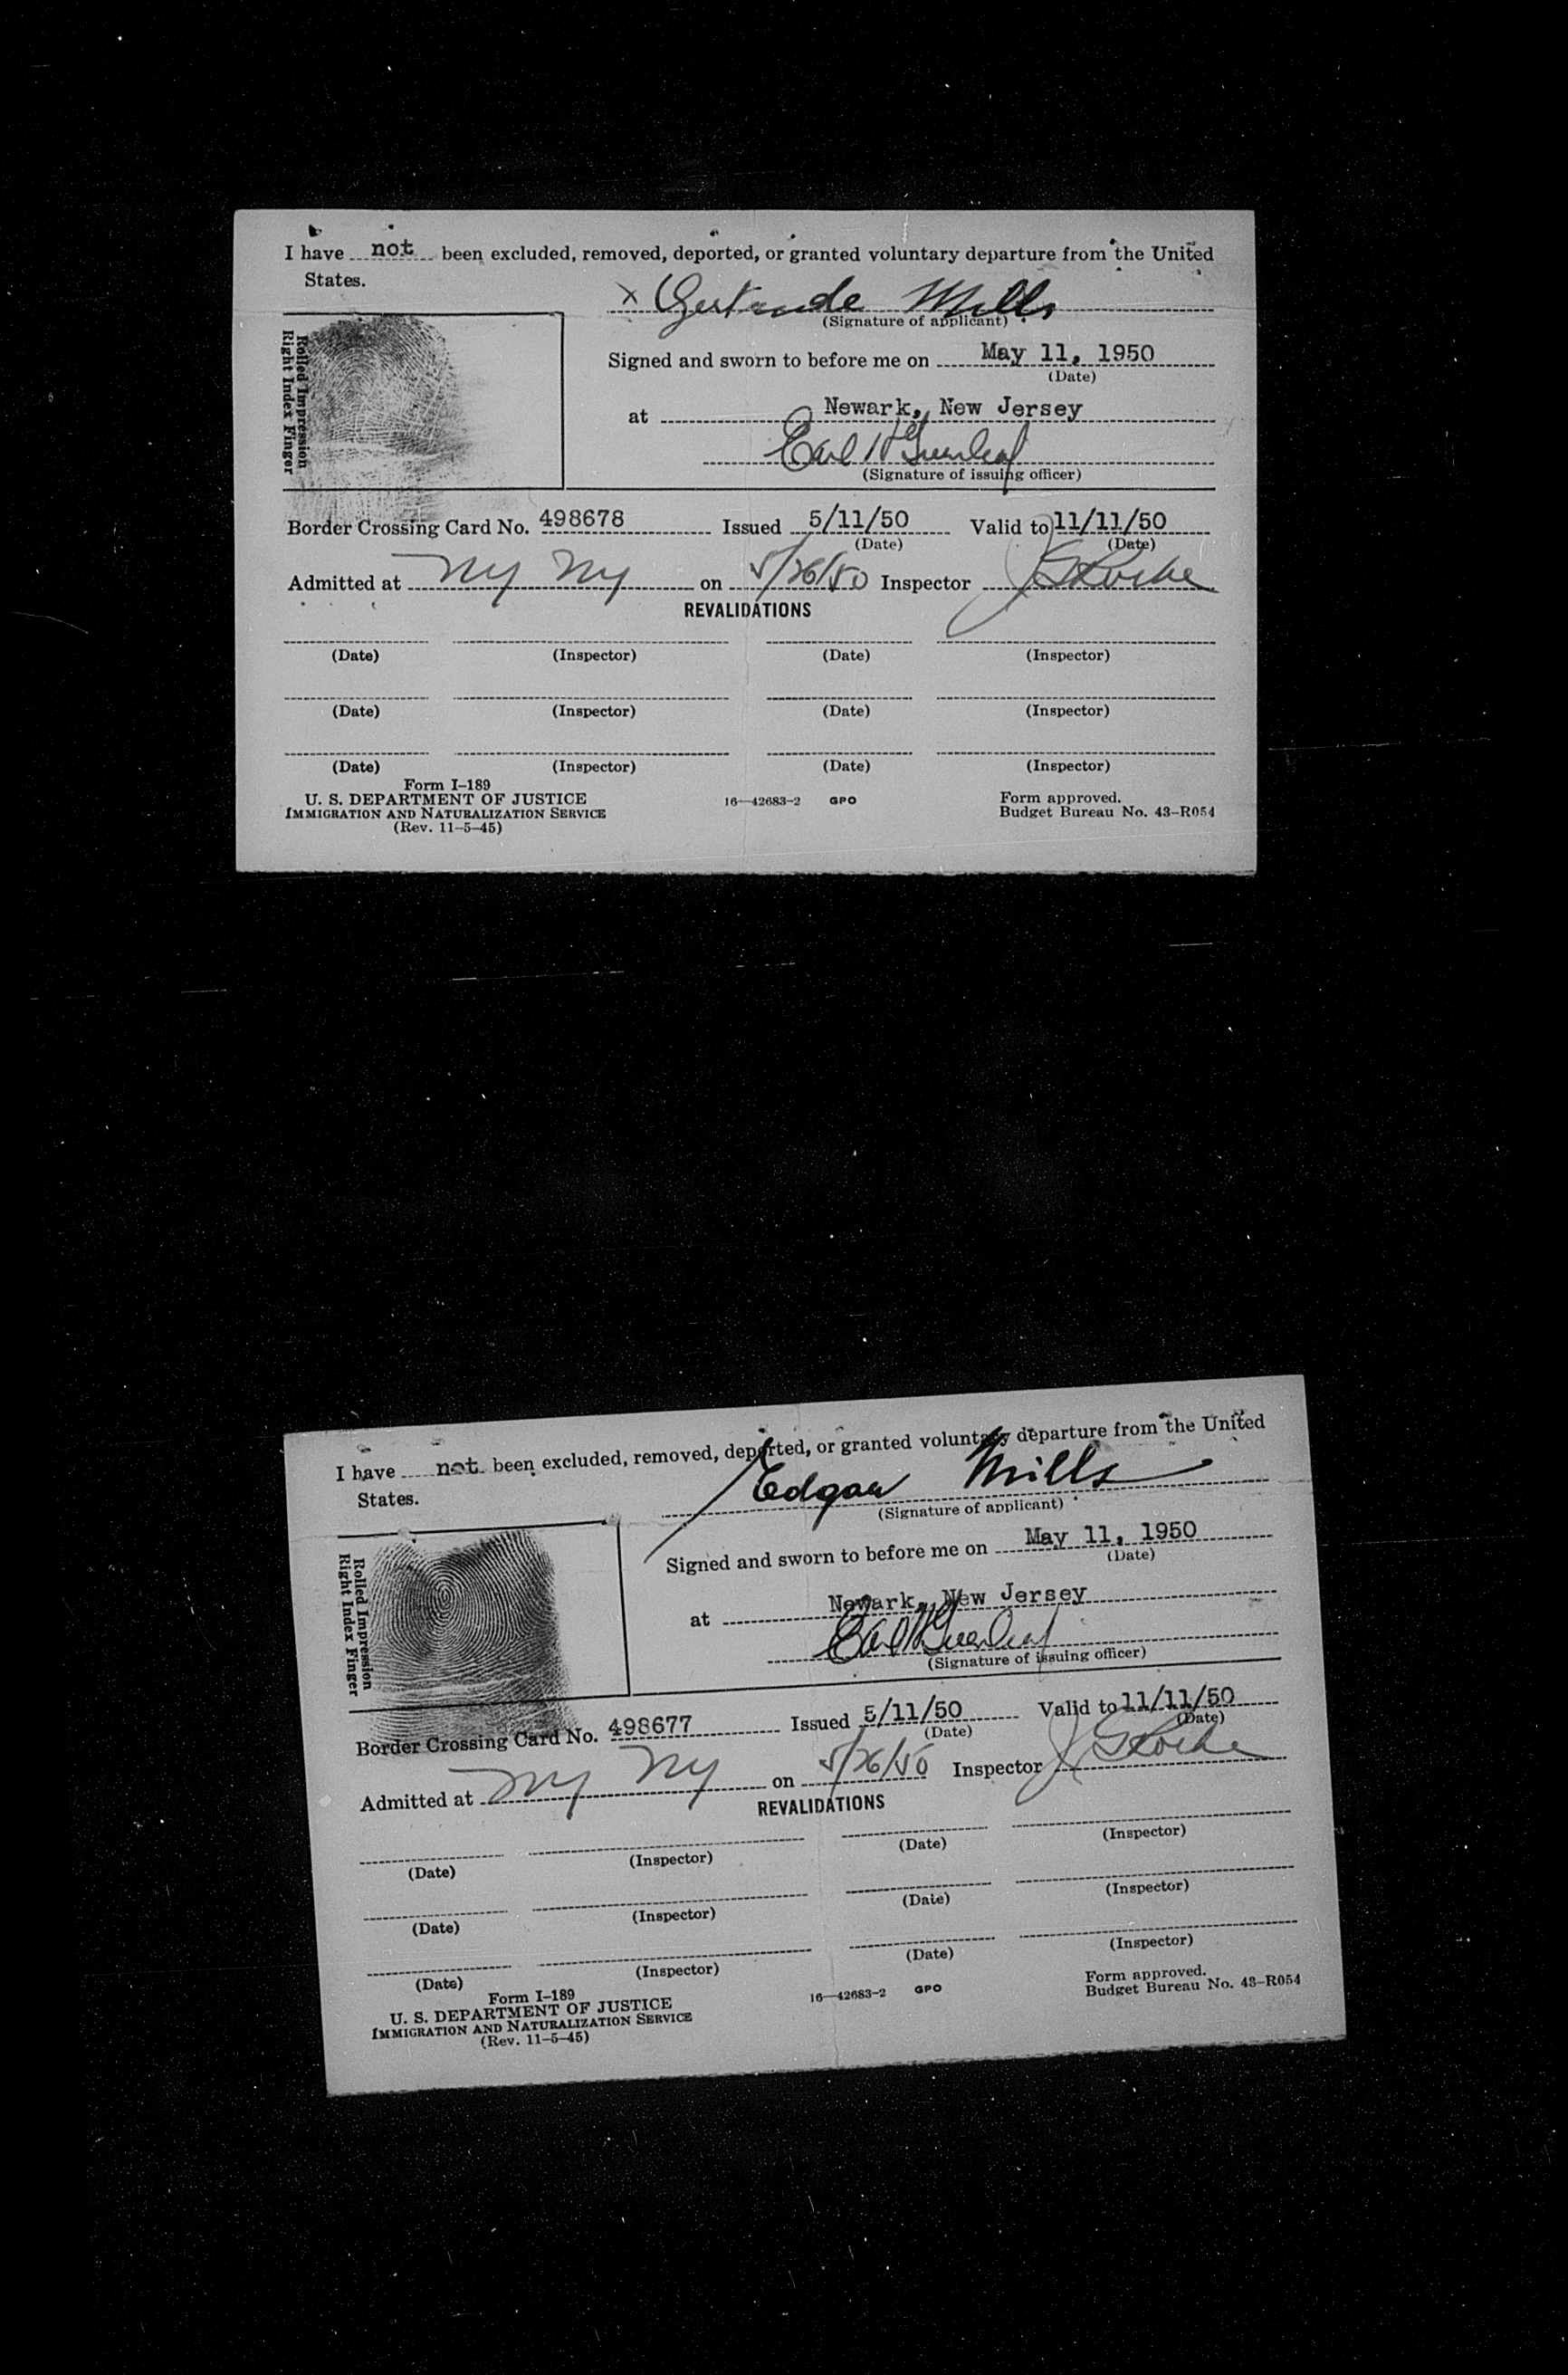 I have not been excluded, removed, deported, or granted voluntary departure from the United
States.
x Gertrude Mills
(Signature of applicant)
Rolled Impression
Right Index Finger
Signed and sworn to before me on May 11, 1950
(Date)
at Newark, New Jersey
Earl W Greenleaf
(Signature of issuing officer)
Border Crossing Card No. 498678 Issued 5/11/50 Valid to 11/11/50
(Date) (Date)
Admitted at NY NY on 5/26/50 Inspector
REVALIDATIONS
(Date) (Inspector) (Date) (Inspector)
(Date) (Inspector) (Date) (Inspector)
(Date) (Inspector) (Date) (Inspector)
Form I-189
U. S. DEPARTMENT OF JUSTICE 16—42683-2 GPO Form approved.
IMMIGRATION AND NATURALIZATION SERVICE Budget Bureau No. 43-R054
(Rev. 11-5-45)
I have not been excluded, removed, deported, or granted voluntary departure from the United
States.
Edgar Mills
(Signature of applicant)
Rolled Impression
Right Index Finger
Signed and sworn to before me on May 11, 1950
(Date)
at Newark, New Jersey
Earl W Greenleaf
(Signature of issuing officer)
Border Crossing Card No. 498677 Issued 5/11/50 Valid to 11/11/50
(Date) (Date)
Admitted at NY NY on 5/26/50 Inspector
REVALIDATIONS
(Date) (Inspector) (Date) (Inspector)
(Date) (Inspector) (Date) (Inspector)
(Date) (Inspector) (Date) (Inspector)
Form I-189
U. S. DEPARTMENT OF JUSTICE 16—42683-2 GPO Form approved.
IMMIGRATION AND NATURALIZATION SERVICE Budget Bureau No. 43-R054
(Rev. 11-5-45)